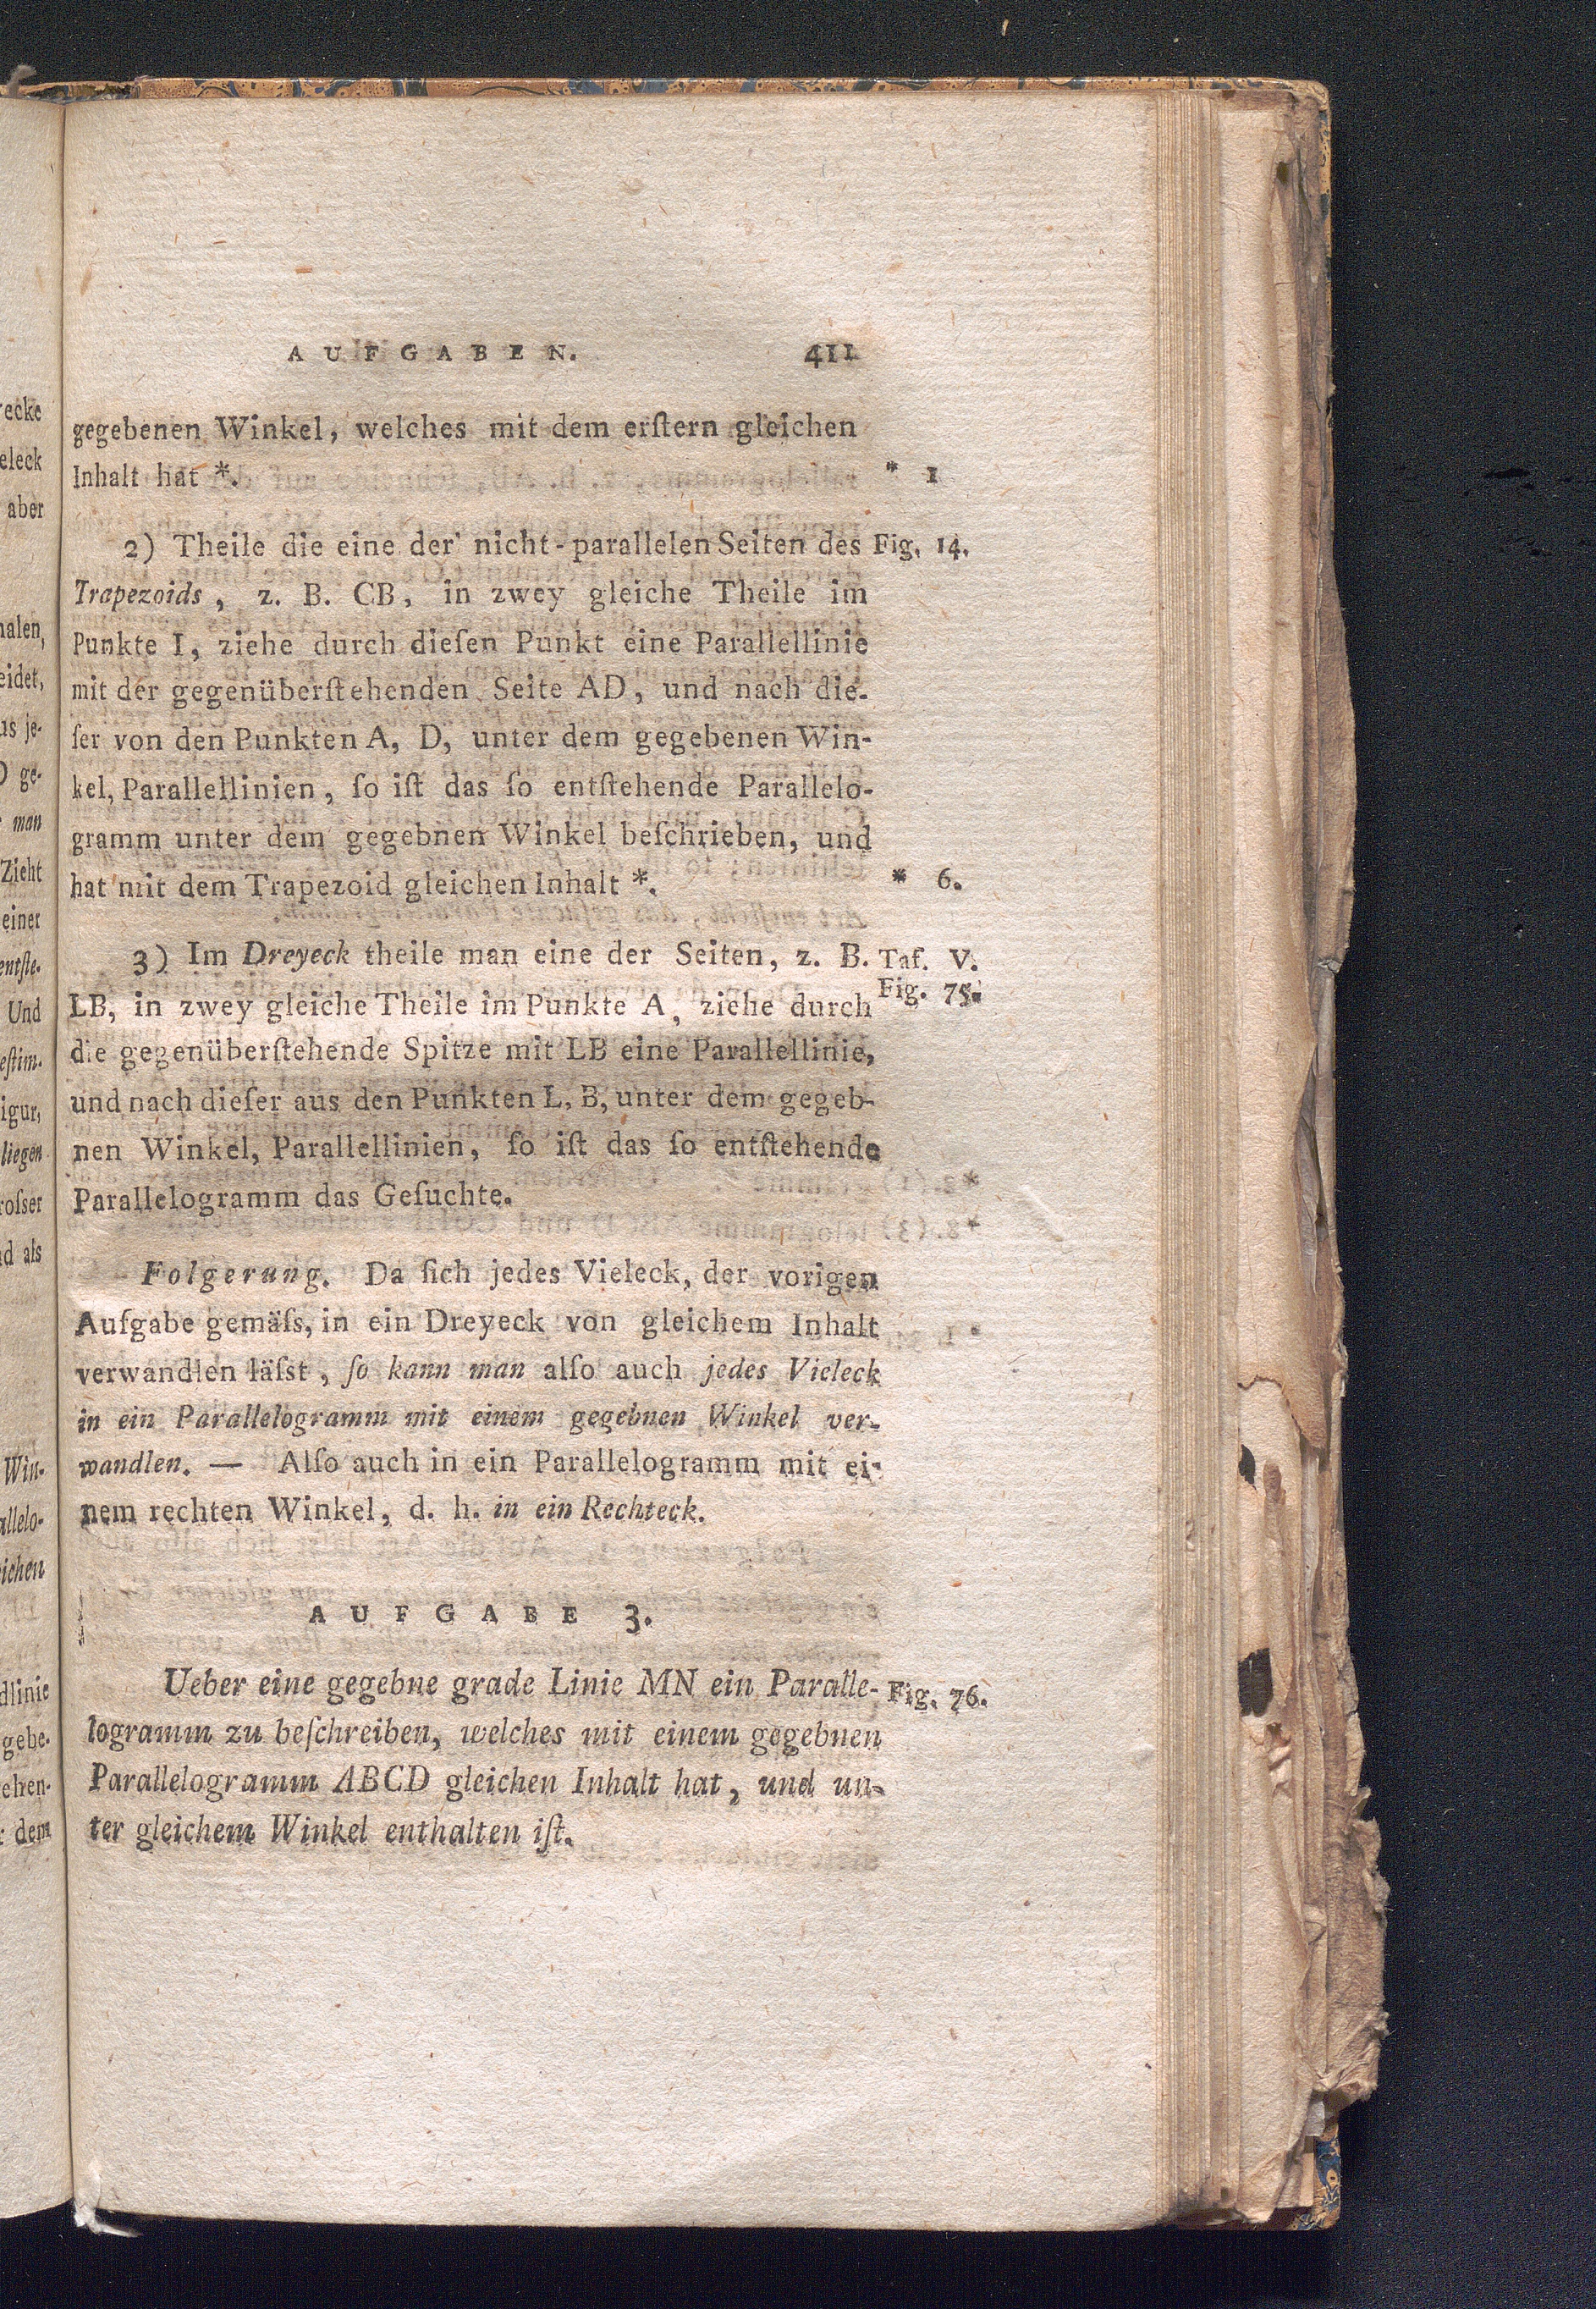 AUFGABEN. 411
gegebenen Winkel, welches mit dem erſtern gleichen
Inhalt hat *. * 1
2) Theile die eine der nicht-parallelen Seiten des Fig. 14.
Trapezoids, z. B. CB, in zwey gleiche Theile im
Punkte I, ziehe durch dieſen Punkt eine Parallellinie
mit der gegenüberſtehenden Seite AD, und nach die-
ſer von den Punkten A, D, unter dem gegebenen Win-
kel, Parallellinien, ſo iſt das ſo entſtehende Parallelo-
gramm unter dem gegebnen Winkel beſchrieben, und
hat mit dem Trapezoid gleichen Inhalt *. * 6.
3) Im Dreyeck theile man eine der Seiten, z. B. Taf. V.
Fig. 75.
LB, in zwey gleiche Theile im Punkte A, ziehe durch
die gegenüberſtehende Spitze mit LB eine Parallellinie,
und nach dieſer aus den Punkten L, B, unter dem gegeb-
nen Winkel, Parallellinien, ſo iſt das ſo entſtehende
Parallelogramm das Geſuchte.
Folgerung. Da ſich jedes Vieleck, der vorigen
Aufgabe gemäſs, in ein Dreyeck von gleichem Inhalt
verwandlen läſst, ſo kann man alſo auch jedes Vieleck
in ein Parallelogramm mit einem gegebnen Winkel ver-
wandlen. — Alſo auch in ein Parallelogramm mit ei-
nem rechten Winkel, d. h. in ein Rechteck.
AUFGABE 3.
Ueber eine gegebne grade Linie MN ein Paralle- Fig. 76.
logramm zu beſchreiben, welches mit einem gegebnen
Parallelogramm ABCD gleichen Inhalt hat, und un-
ter gleichem Winkel enthalten iſt.